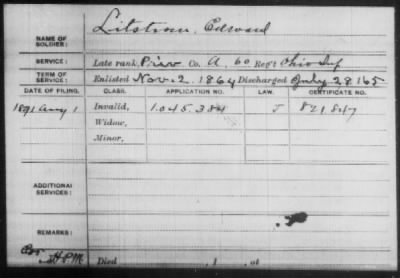 NAME OF SOLDIER: Litstrau, Edward
SERVICE: Late rank, Priv Co. A, 60 Reg't Ohio Inf
TERM OF SERVICE: Enlisted Nov. 2. 1864 Discharged July 28 '65
DATE OF FILING. CLASS. APPLICATION NO. LAW. CERTIFICATE NO.
1891 Aug 1 Invalid, 1.045.384 J 821.847
Widow,
Minor,
ADDITIONAL SERVICES:
REMARKS:
H P M Died , 1 , at